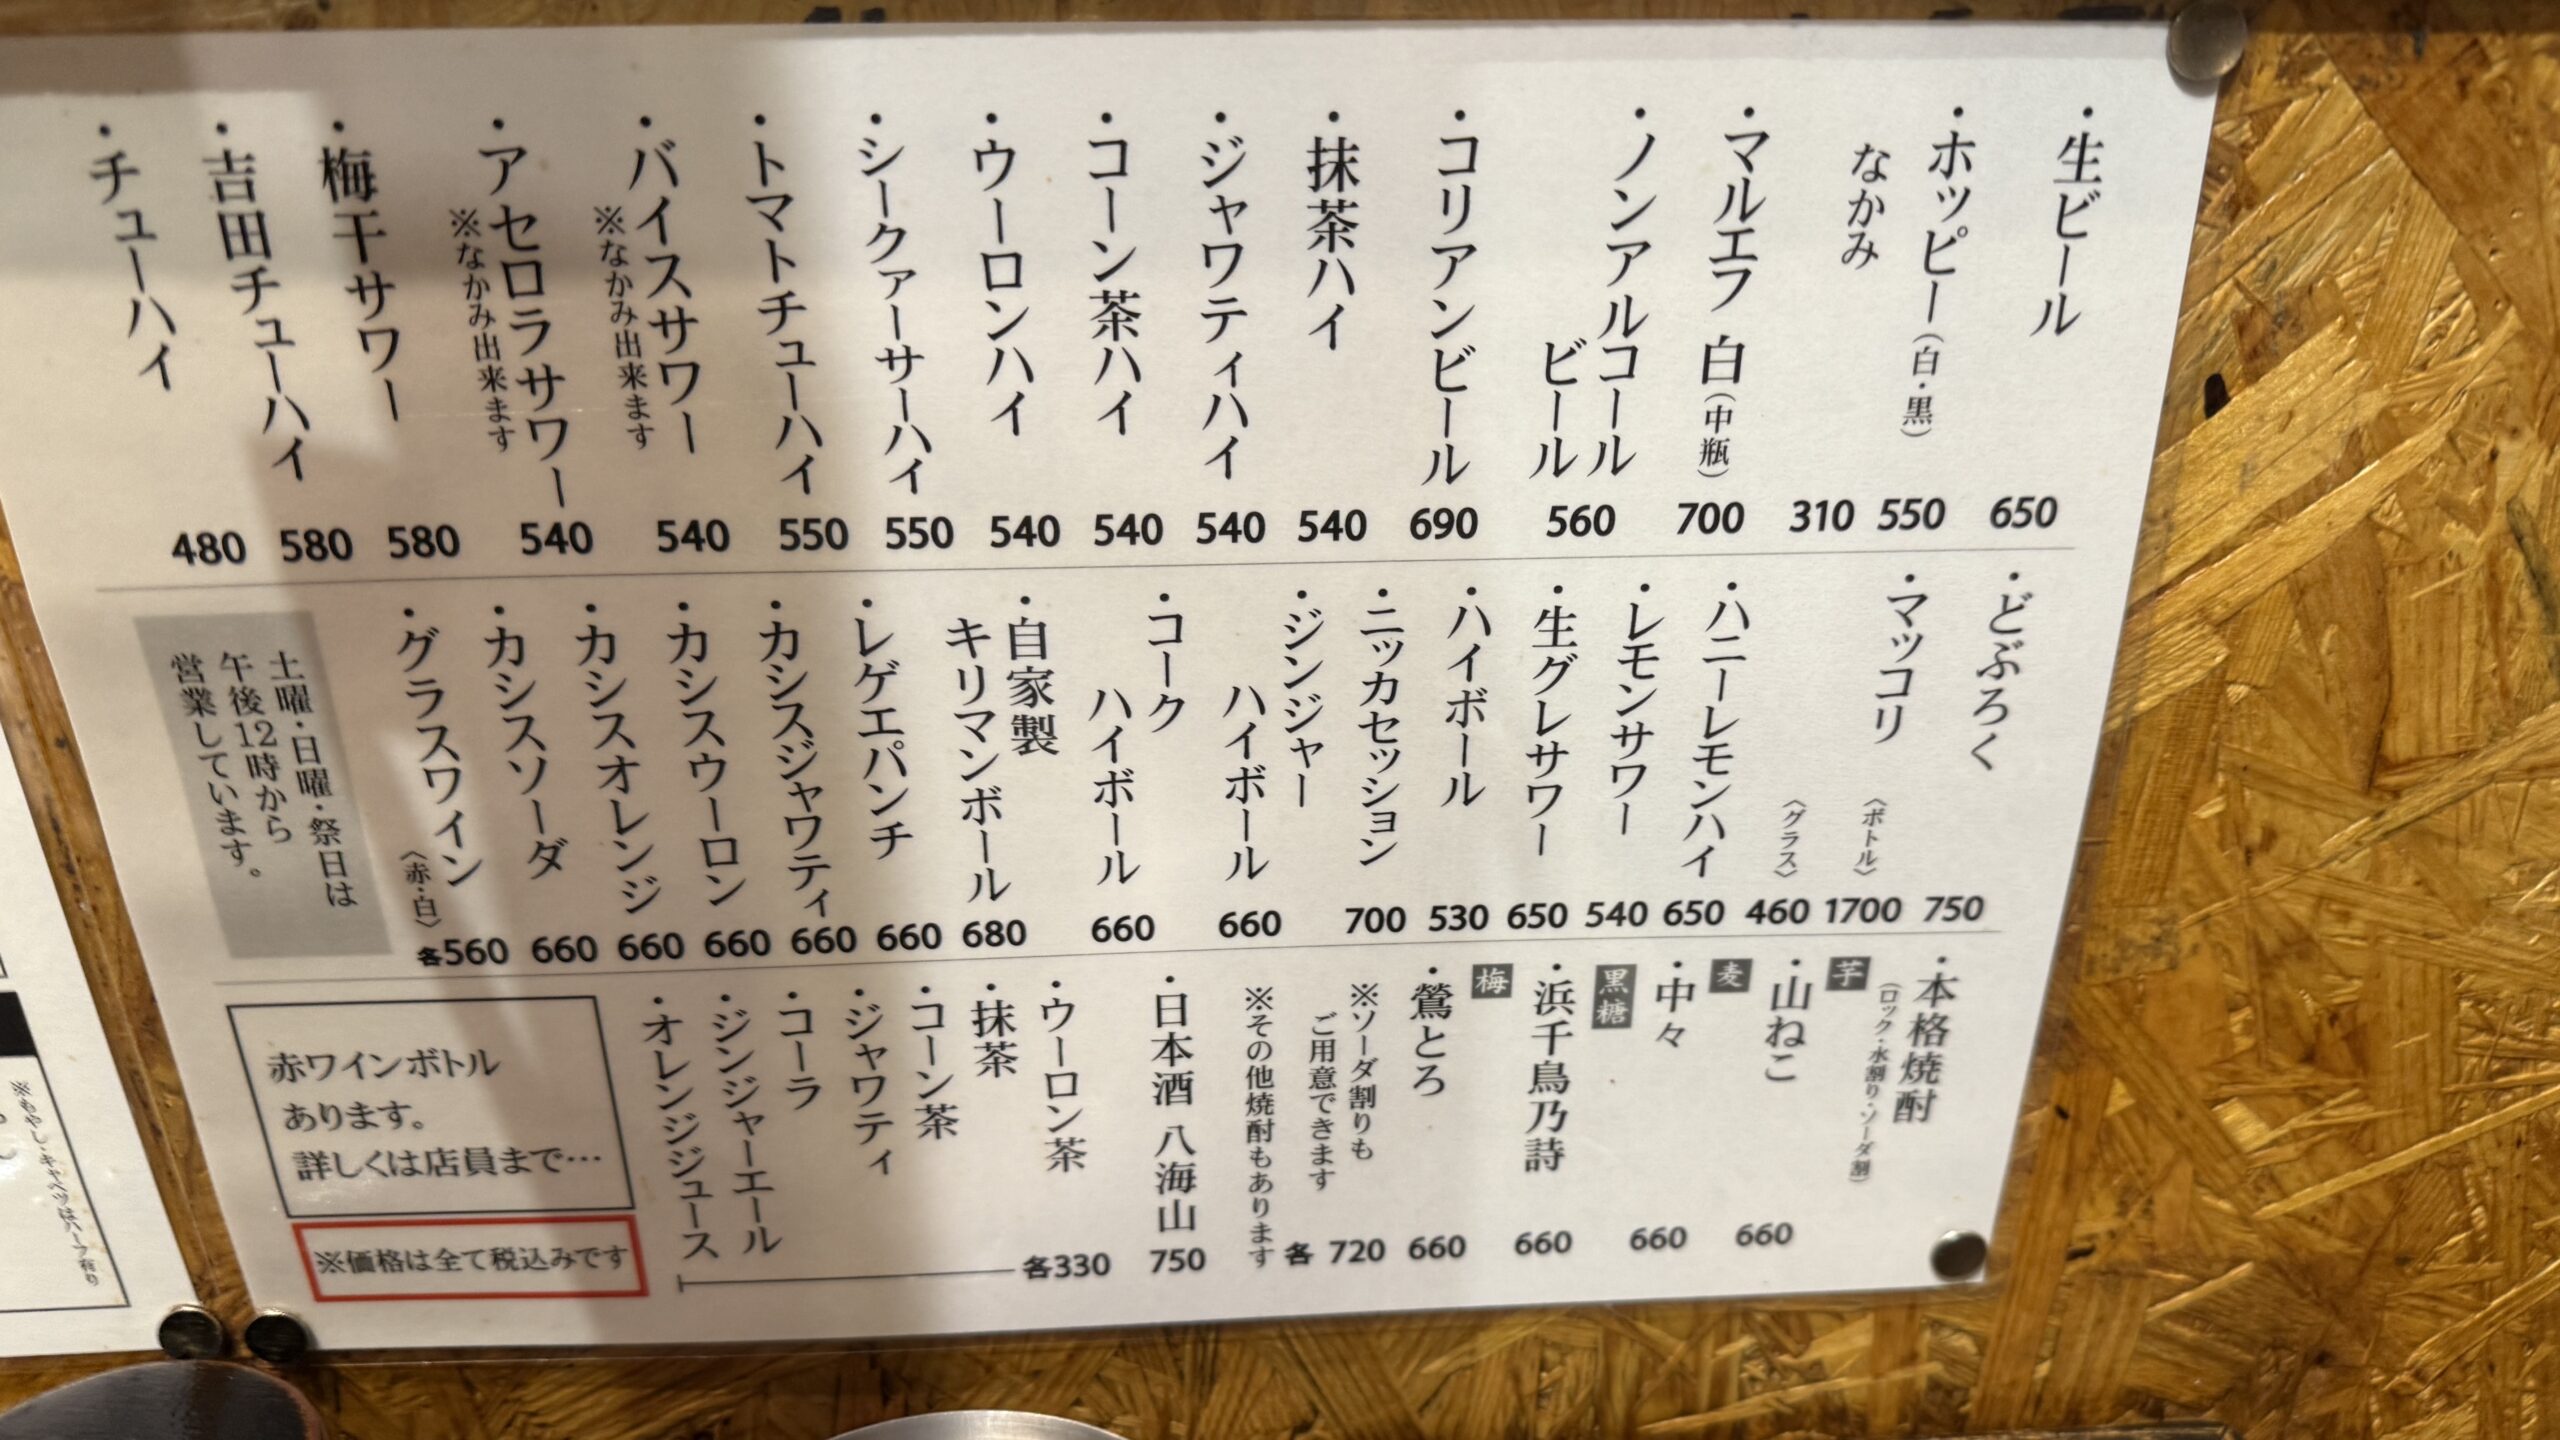 ・生ビール 650
・ホッピー（白・黒） 550
なかみ 310
・マルエフ 白（中瓶） 700
・ノンアルコール
ビール 560
・コリアンビール 690
・抹茶ハイ 540
・ジャワティハイ 540
・コーン茶ハイ 540
・ウーロンハイ 540
・シークァーサーハイ 550
・トマトチューハイ 550
・バイスサワー 540
※なかみ出来ます
・アセロラサワー 540
※なかみ出来ます
・梅干サワー 580
・吉田チューハイ 580
・チューハイ 480
・どぶろく 750
・マッコリ
〈ボトル〉 1700
〈グラス〉 460
・ハニーレモンハイ 650
・レモンサワー 540
・生グレサワー 650
・ハイボール 530
・ニッカセッション 700
・ジンジャー
ハイボール 660
・コーク
ハイボール 660
・自家製
キリマンボール 680
・レゲエパンチ 660
・カシスジャワティ 660
・カシスウーロン 660
・カシスオレンジ 660
・カシスソーダ 660
・グラスワイン
〈赤・白〉 各560
土曜・日曜・祭日は
午後12時から
営業しています。
・本格焼酎
（ロック・水割り・ソーダ割）
芋
・山ねこ 660
麦
・中々 660
黒糖
・浜千鳥乃詩 660
梅
・鶯とろ 660
※ソーダ割りも
ご用意できます
各 720
※その他焼酎もあります
・日本酒 八海山 750
・ウーロン茶 各330
・抹茶
・コーン茶
・ジャワティ
・コーラ
・ジンジャーエール
・オレンジジュース
赤ワインボトル
あります。
詳しくは店員まで…
※価格は全て税込みです
※もやし・キャベツはハーフ有り